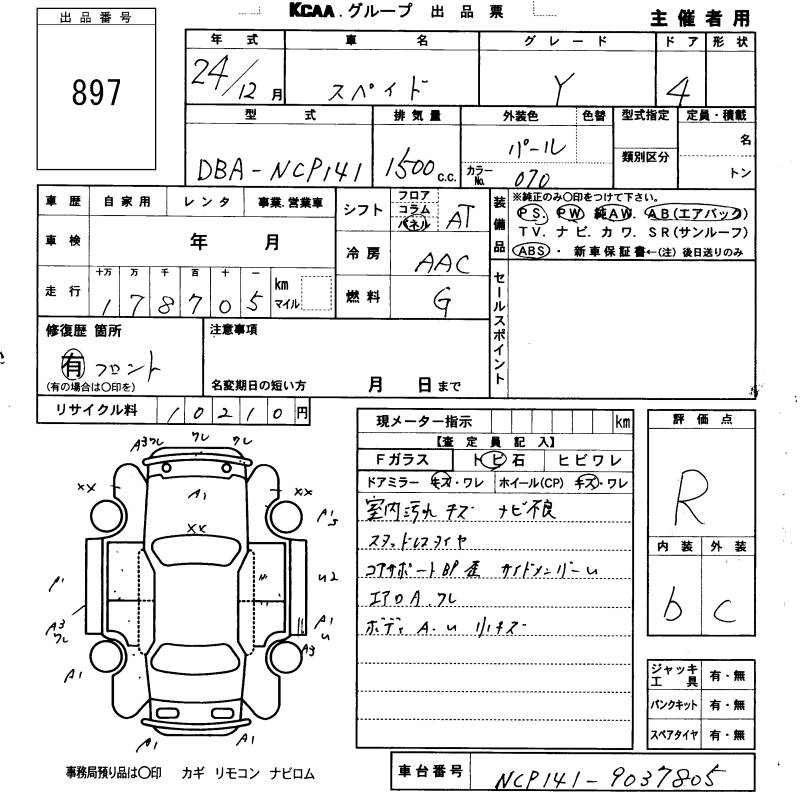 KCAA.グループ 出品票
主催者用
出品番号
897
年式 車名 グレード ドア 形状
24/12月 スペイド Y 4
型式 排気量 外装色 色替 型式指定 定員・積載
DBA-NCP141 1500c.c. パール 名
カラーNo. 070 類別区分 トン
車歴 自家用 レンタ 事業.営業車
シフト フロア コラム パネル AT
装備品 ※純正のみ〇印をつけて下さい。
PS. PW 純AW. AB(エアバック)
TV. ナビ. カワ. SR(サンルーフ)
ABS・ 新車保証書←(注)後日送りのみ
車検 年 月
冷房 AAC
走行 十万 万 千 百 十 一 km マイル
178705
燃料 G
セールスポイント
修復歴 箇所 注意事項
有 フロント
(有の場合は〇印を) 名変期日の短い方 月 日まで
リサイクル料 10210円
現メーター指示 km
【査定員記入】
Fガラス トビ石 ヒビワレ
ドアミラー キズ・ワレ ホイール(CP) キズ・ワレ
室内汚れ キズ ナビ不良
スタッドレスタイヤ
コアサポートBP歪 サイドメンバーU
エアロA.ワレ
ボディ A.U 小キズ
評価点
R
内装 外装
b C
A3ワレ ワレ ワレ
XX A1 XX
XX A1S
U2
A3ワレ A1U
A1 A3
A1 A1
ジャッキ工具 有・無
パンクキット 有・無
スペアタイヤ 有・無
事務局預り品は〇印 カギ リモコン ナビロム
車台番号 NCP141-9037805